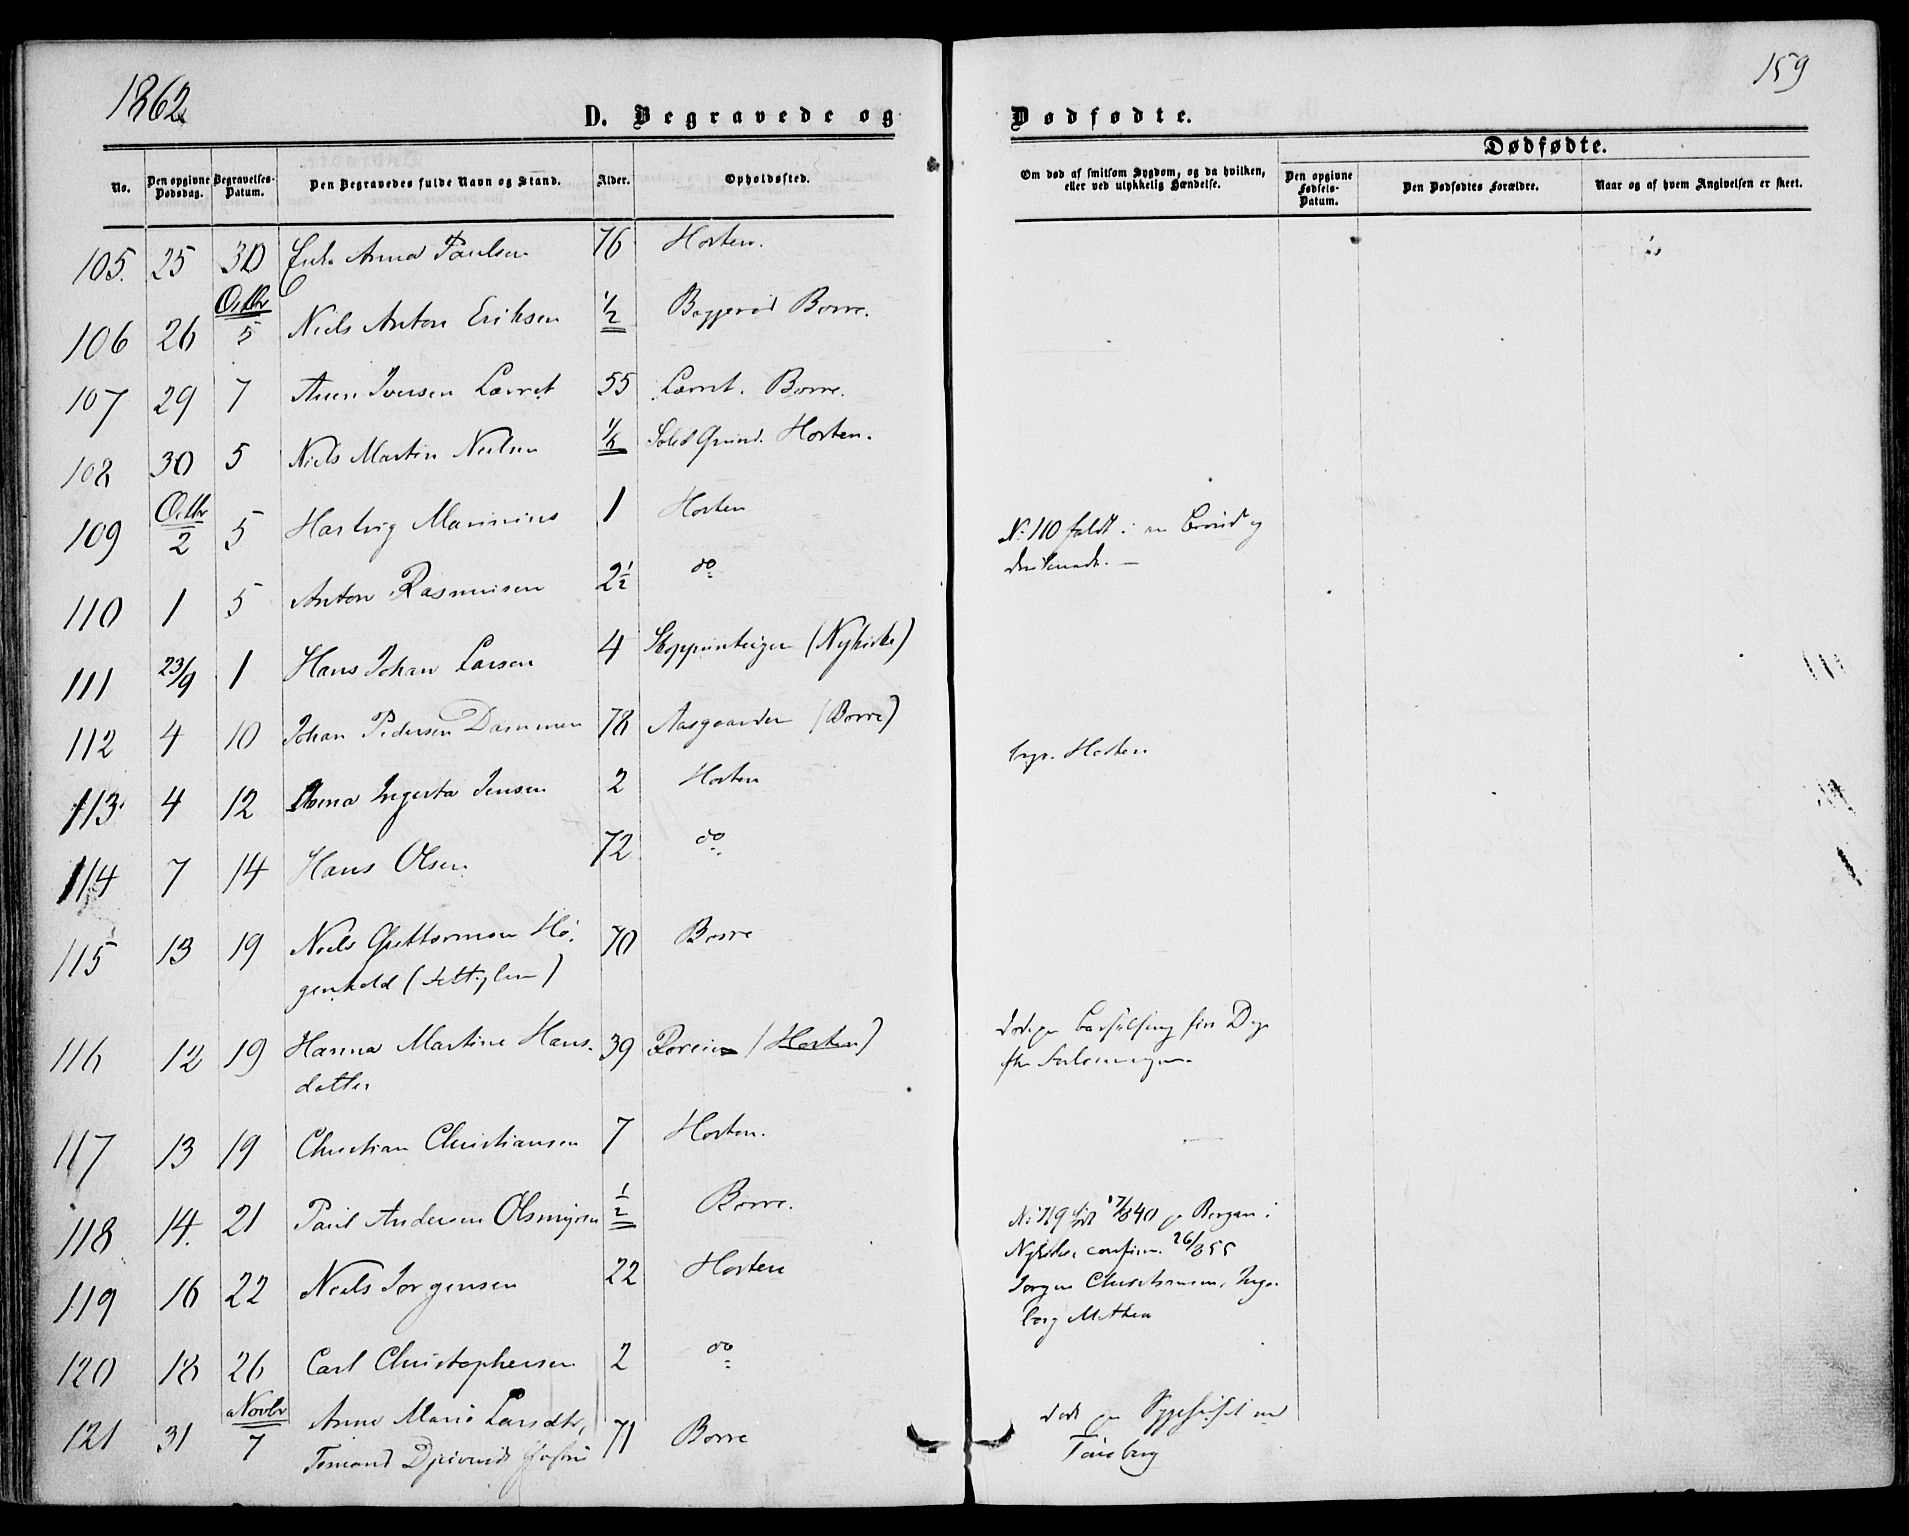 1862
159
D. Begravede og Dødfødte.
Dødfødte.
No. Den opgivne Dødsdag. Begravelses-Datum. Den Begravedes fulde Navn og Stand. Alder. Opholdssted. Om død af smitsom Sygdom, og da hvilken, eller ved ulykkelig Hændelse. Den opgivne Fødsels-Datum. Den Dødfødtes Forældre. Naar og af hvem Angivelsen er skeet.
105. 25 30 Enke Anna Paulsen 76 Horten.
Octbr
106 26 5 Niels Anton Eriksen 1/2 Borre.
107 29 7 Iversen Lærret 55 Lærret. Borre.
108 30 5 Niels Martin Nielsen Grund. Horten.
Octbr
109 2 5 Hartvig Marinius 1 Horten
No 110 faldt i en Brønd og
druknede. —
110 1 5 Anton Rasmusen 2 1/2 do
111 23/9 1 Hans Johan Larsen 4 (Nykirke)
112 4 10 Johan Pedersen Dammen 78 Aasgaarden (Borre)
Horten
113. 4 12 Anna Ingerta Jensen 2 Horten
114 7 14 Hans Olsen 72 do
115 13 19 Niels Guttormsen Hø-
70 Borre
116 12 19 Hanna Martine Hans-
datter 39 (Horten)
117 13 19 Christian Christiansen 7 Horten.
118 14. 21 Paul Andersen Olsmyren 1/2 Borre.
No 119 født 17/840 p Borgen i
Nykirke, confirm. 26/855
119 16 22 Niels Jørgensen 22 Horten
Jørgen Christiansen, Inge-
borg Mathea
120 18 26 Carl Christophersen 2 do
Novbr
121 31 7 Anne Marie Larsdtr, 71 Borre
død paa Sygehuset ved
Tønsberg